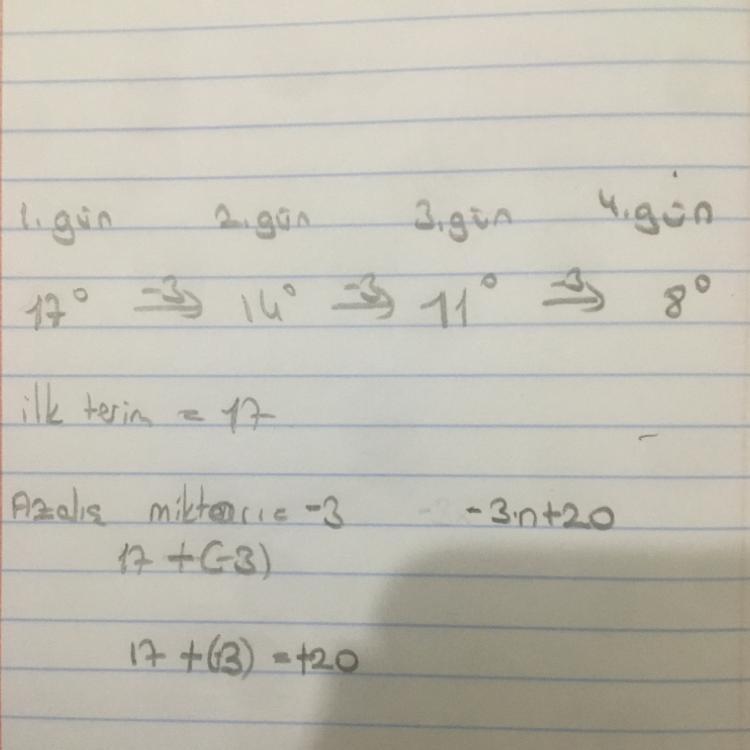 1. gün 2. gün 3. gün 4. gün
17° -3 14° -3 11° -3 8°
ilk terim = 17
Azalış miktarı = -3 -3.n+20
17 + (-3)
17 + (+3) = +20